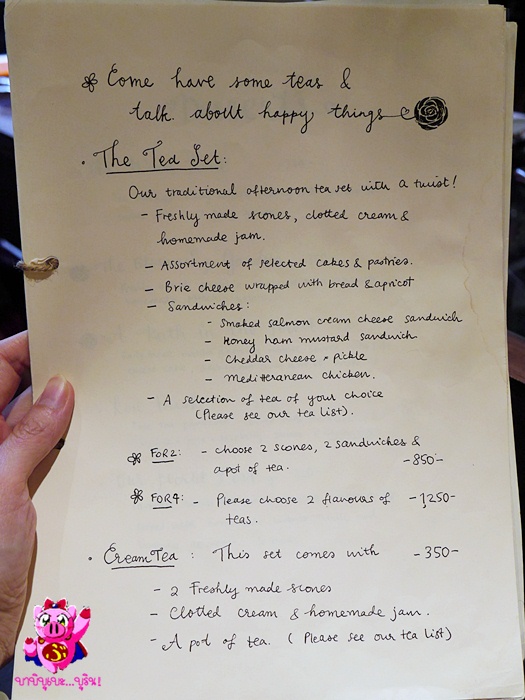 Come have some teas &
talk about happy things
• The Tea Set:
Our traditional afternoon tea set with a twist!
- Freshly made scones, clotted cream &
homemade jam.
- Assortment of selected cakes & pastries.
- Brie cheese wrapped with bread & apricot
- Sandwiches:
- Smoked salmon cream cheese sandwich
- Honey ham mustard sandwich
- Cheddar cheese * pickle
- Mediterranean chicken.
- A selection of tea of your choice
(Please see our tea list).
FOR 2: - choose 2 scones, 2 sandwiches &
a pot of tea. -850-
FOR 4: - Please choose 2 flavours of -1250-
teas.
• Cream Tea: This set comes with -350-
- 2 Freshly made scones
- Clotted cream & homemade jam.
- A pot of tea. (Please see our tea list)
บาบิบูเบะ...บุริน!